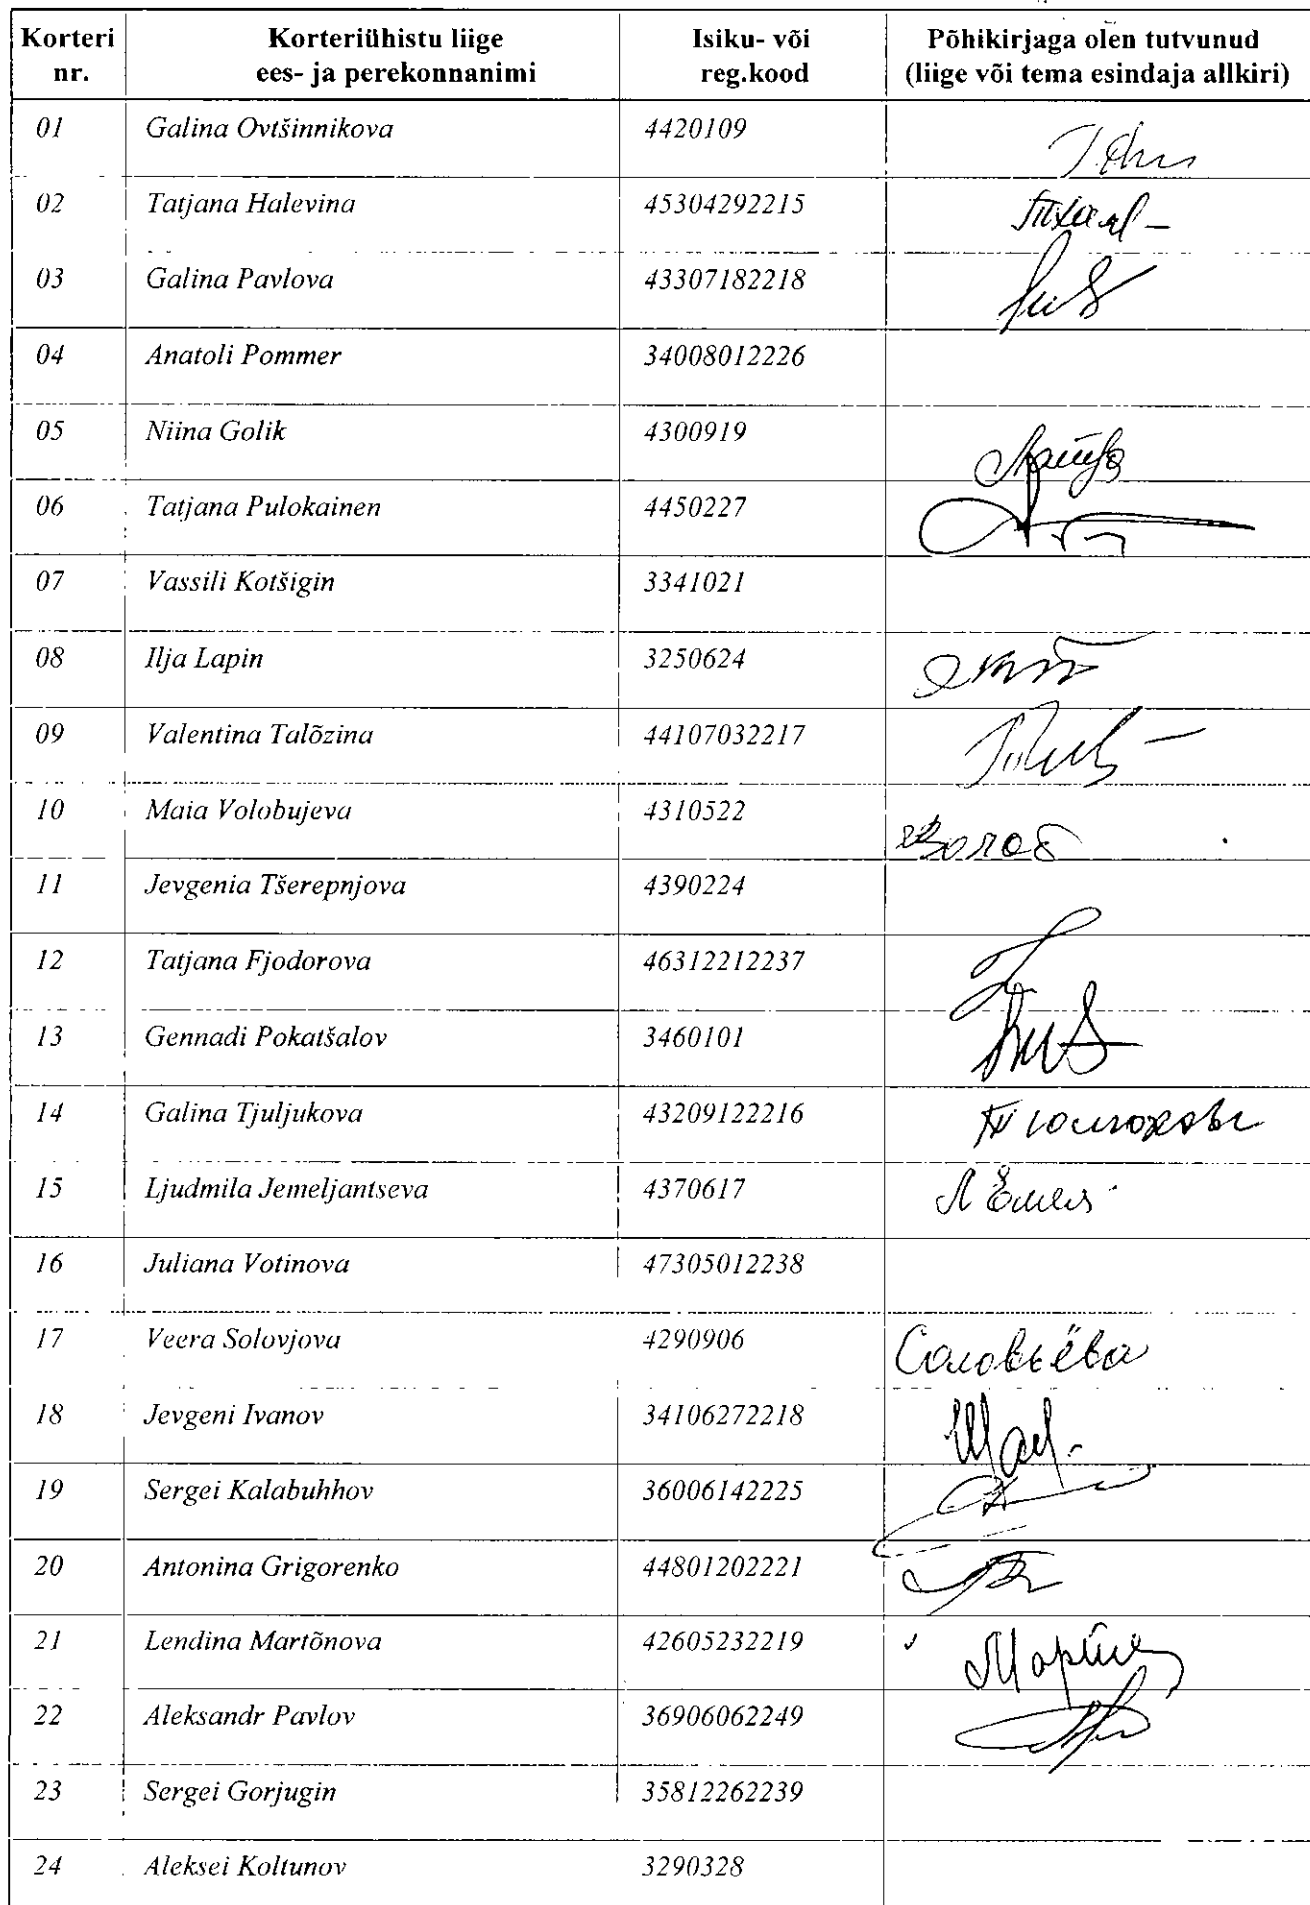 Korteri nr. Korteriühistu liige ees- ja perekonnanimi Isiku- või reg.kood Põhikirjaga olen tutvunud (liige või tema esindaja allkiri)
01 Galina Ovtšinnikova 4420109
02 Tatjana Halevina 45304292215
03 Galina Pavlova 43307182218
04 Anatoli Pommer 34008012226
05 Niina Golik 4300919
06 Tatjana Pulokainen 4450227
07 Vassili Kotšigin 3341021
08 Ilja Lapin 3250624
09 Valentina Talõzina 44107032217
10 Maia Volobujeva 4310522
11 Jevgenia Tšerepnjova 4390224
12 Tatjana Fjodorova 46312212237
13 Gennadi Pokatšalov 3460101
14 Galina Tjuljukova 43209122216
15 Ljudmila Jemeljantseva 4370617
16 Juliana Votinova 47305012238
17 Veera Solovjova 4290906 Соловьёва
18 Jevgeni Ivanov 34106272218
19 Sergei Kalabuhhov 36006142225
20 Antonina Grigorenko 44801202221
21 Lendina Martõnova 42605232219
22 Aleksandr Pavlov 36906062249
23 Sergei Gorjugin 35812262239
24 Aleksei Koltunov 3290328